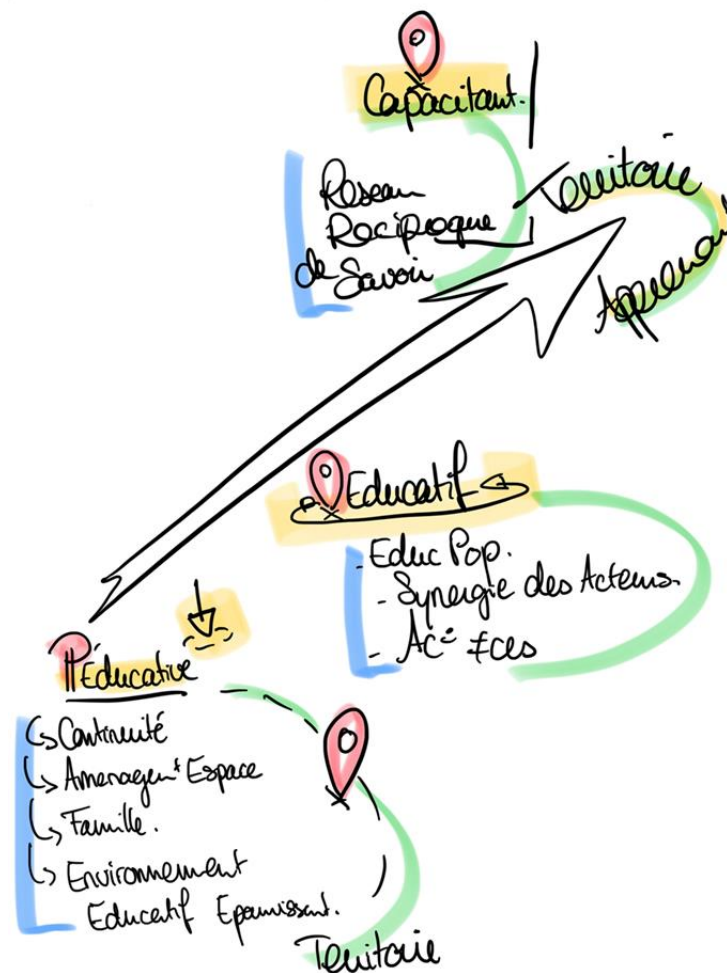 Capacitant.
Réseau
Réciproque
de Savoir
Territoire
Apprenant
Educatif
- Educ Pop.
- Synergie des Acteurs.
-
Éducative
↳ Continuité
↳ Amenagem^t Espace
↳ Famille.
↳ Environnement
Educatif Epanouissant.
Territoire